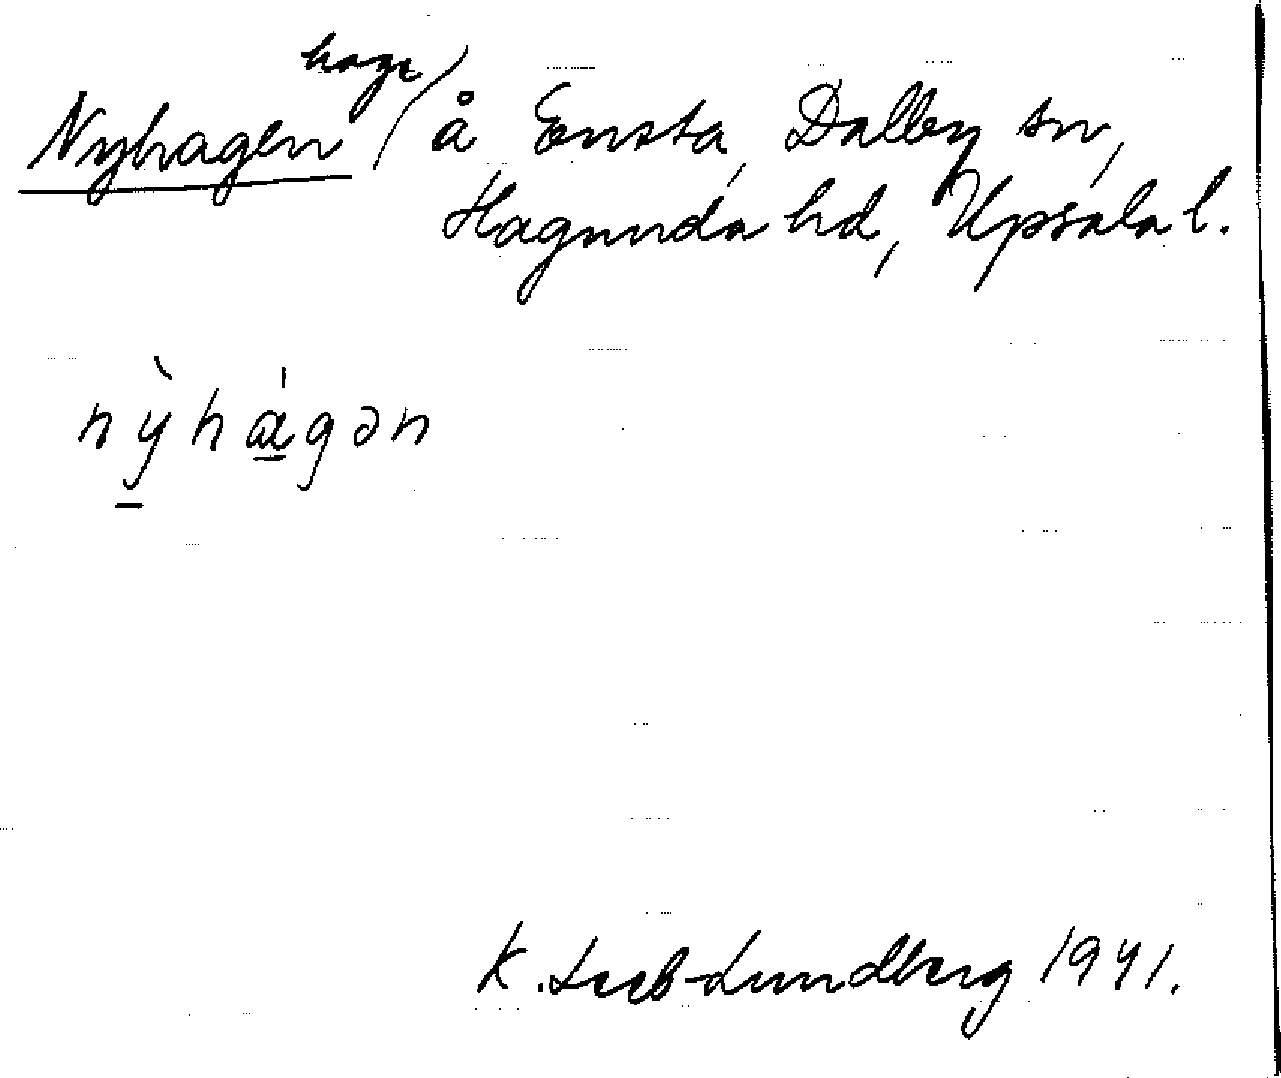 hage
Nyhagen å Ensta, Dalby sn,
Hagunda hd, Upsala l.
nỳhágən
K. Leeb-Lundberg 1941.